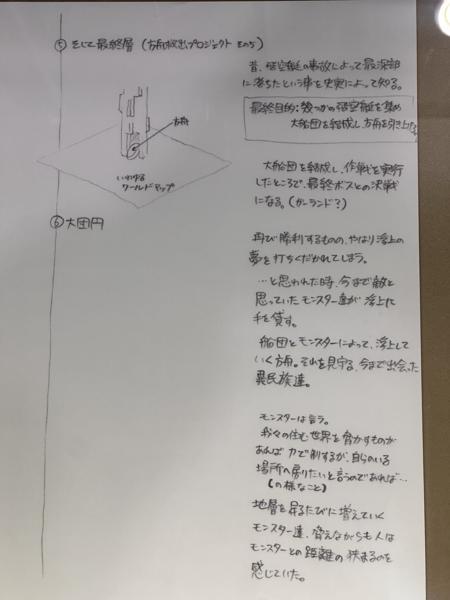 ⑤ そして最終層 (方舟救出プロジェクト その5)
昔、飛空艇の事故によって最深部
に落ちたという事を史実によって知る。
最終目的: 幾つかの飛空艇を集め
大船団を結成し、方舟を引き上げ
方舟
いわゆる
ワールドマップ
大船団を結成し、作戦を実行
したところで、最終ボスとの決戦
になる。(ガーランド?)
⑥ 大団円
再び勝利するものの、やはり浮上の
夢を打ちくだかれてしまう。
…と思われた時、今まで敵と
思っていたモンスター達が浮上に
手を貸す。
船団とモンスターによって、浮上して
いく方舟。それを見守る、今まで出会った
異民族達。
モンスターは言う。
我々の住む世界を脅かすものが
あれば力で制するが、自らのいる
場所へ戻りたいと言うのであれば…
(の様なこと)
地層を昇るたびに増えていく
モンスター達、脅えながらも人は
モンスターとの距離の狭まるのを
感じていた。